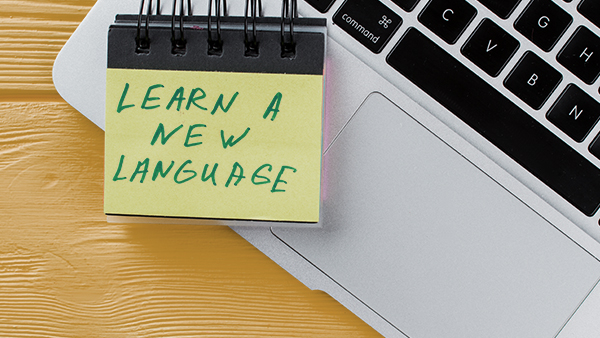 LEARN A
NEW
LANGUAGE
⌘
command
C
V
B
N
G
H